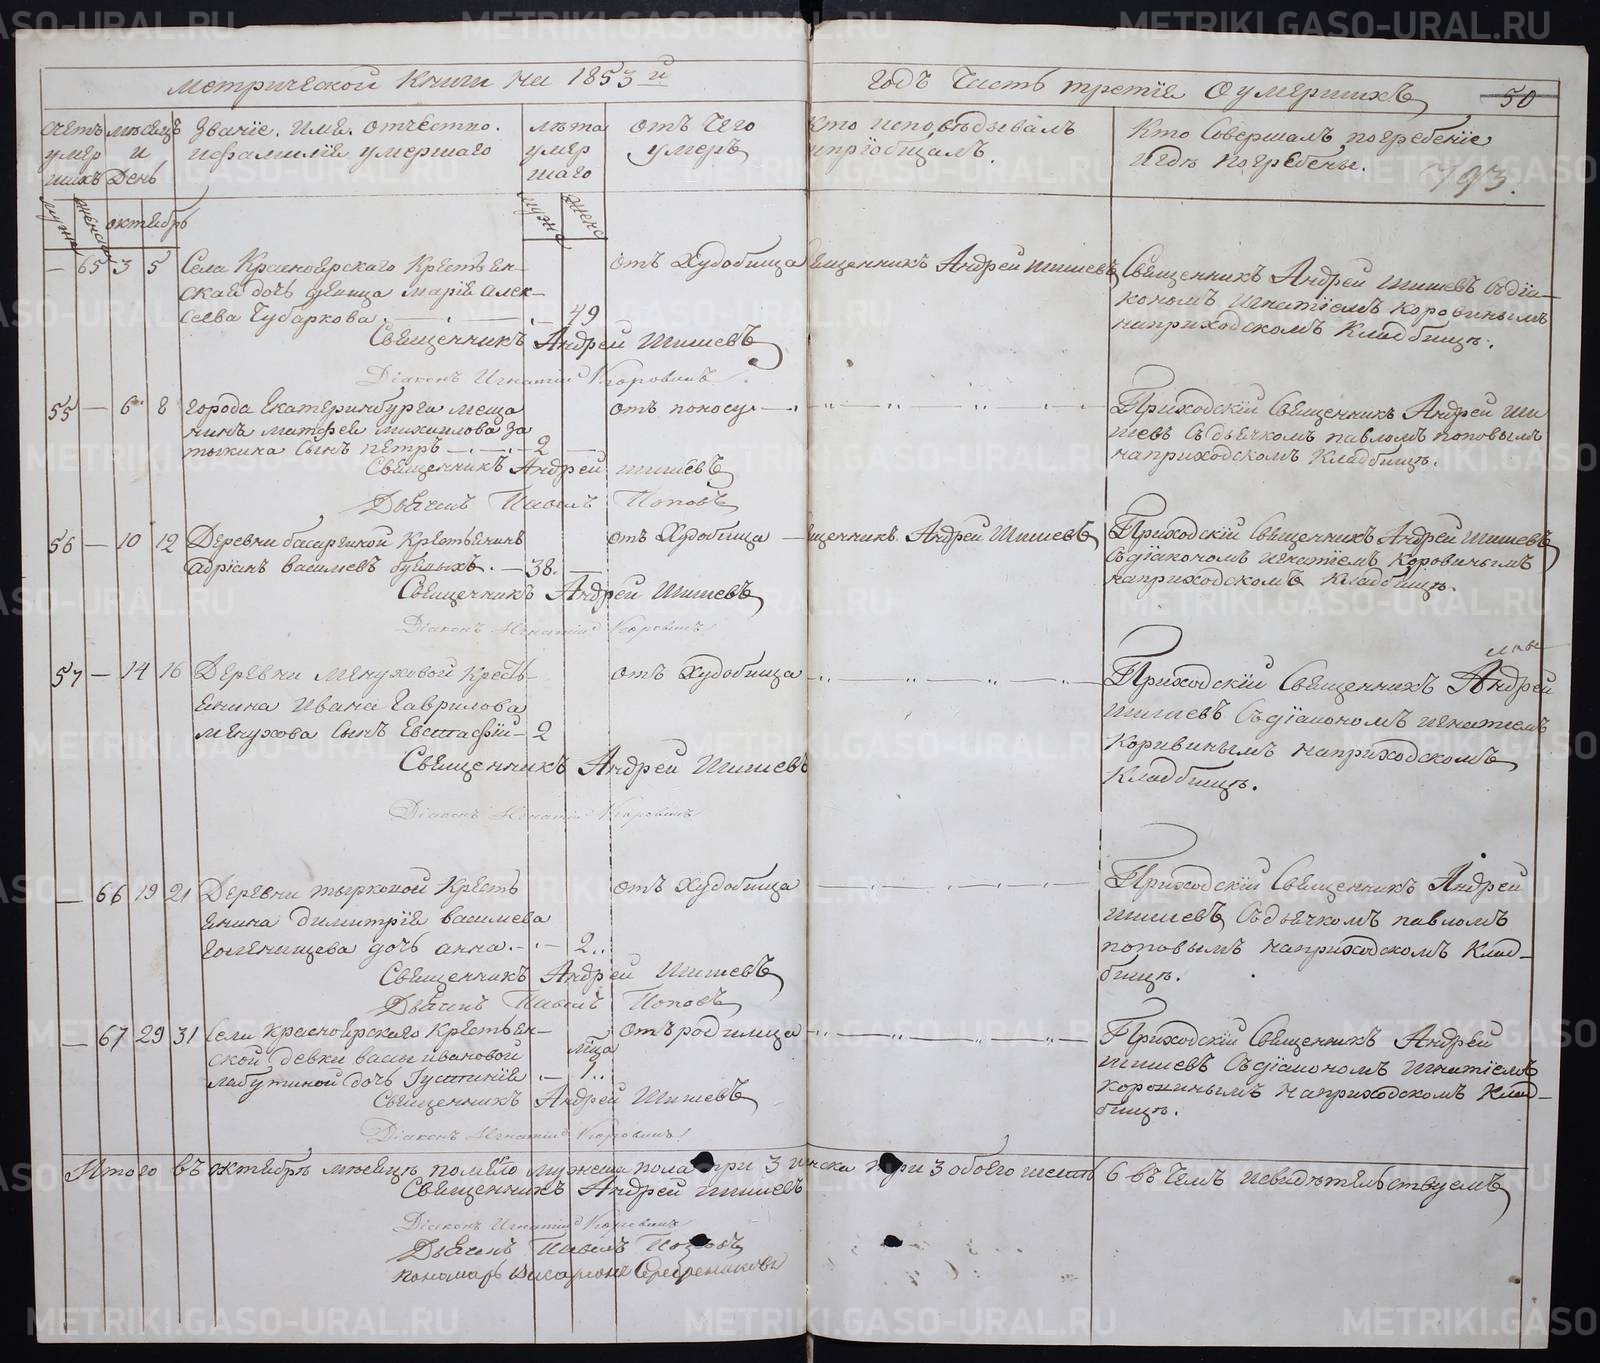 Метрической Книги на 1853 й годъ Часть третіе Оумершихъ 50
793.
счетъ умершихъ
мужс женски
месецъ и День
октябрь
Званіе. Имя. отчество. ифамиліе умершаго
лета умершаго
мужс женс
отъ Чего умеръ
Кто исповедывалъ ипріобщалъ.
Кто Совершалъ погребеніе игде погребены.
— 65 3 5 Села Красноярскаго Крестьен-
ская дочь девица Маріе Алек-
сеева Чубаркова. — 49
отъ Худобища
Священникъ Андрей Шишевъ
Священникъ Андрей Шишевъ Съдіа-
кономъ Игнатіемъ Коровинымъ
наприходскомъ Кладбище.
Священникъ Андрей Шишевъ
Діаконъ Игнатій Коровинъ
55 — 6 8 города Екатеринбурга меща
нинъ Матфей Михаилова За
тыкина Сынъ петръ — 2
отъ поносу
Приходскій Священникъ Андрей Ши
шевъ Съдьячкомъ павломъ поповымъ
наприходскомъ Кладбище.
Священникъ Андрей шишевъ
Дьячекъ Павелъ Поповъ
56 — 10 12 Деревни басарской Крестьенинъ
адріанъ василевъ — 38. —
отъ Худобища
Священникъ. Андрей Шишевъ
Приходскій Священникъ Андрей Шишевъ
Съдіакономъ Игнатіемъ Коровинымъ
наприходскомъ Кладбище.
Священникъ Андрей Шишевъ
Діаконъ Игнатій Коровинъ
57 — 14 16 Деревни Менуховой Кресть-
енина Ивана Гаврилова
Менухова Сынъ Евстафій — 2
отъ Худобища
Приходскій Священникъ Андрей
Шишевъ Съдіакономъ Игнатіемъ
Коривинымъ наприходскомъ
Кладбище.
Священникъ Андрей Шишевъ
Діаконъ Игнатій Коровинъ
— 66 19 21 Деревни Крестъ
енина Димитріе василева
Голенищева дочь анна. — 2..
отъ худобища
Приходскій Священникъ Андрей
Шишевъ Съдьячкомъ павломъ
поповымъ наприходскомъ Клад-
бище.
Священникъ Андрей Шишевъ
Дьячекъ Павелъ Поповъ
— 67 29 31 Села Красноярскаго Крестьен-
ской девки васы ивановой
лабутиной дочь Густиніе — мца 1..
отъ родимца
Приходскій Священникъ Андрей
Шишевъ Съдіакономъ Игнатіемъ
коровинымъ наприходскомъ Клад-
бище.
Священникъ Андрей Шишевъ
Діаконъ Игнатій Коровинъ
Итого въ октябре месеце померло мужеска пола три 3 женска три 3 обоего шесть 6 въ Чемъ исвидетельствуемъ
Священникъ Андрей Шишевъ
Діаконъ Игнатій Коровинъ
Дьячекъ Павелъ Поповъ
пономарь Виссаріонъ Серебрениковъ
METRIKI.GASO-URAL.RU